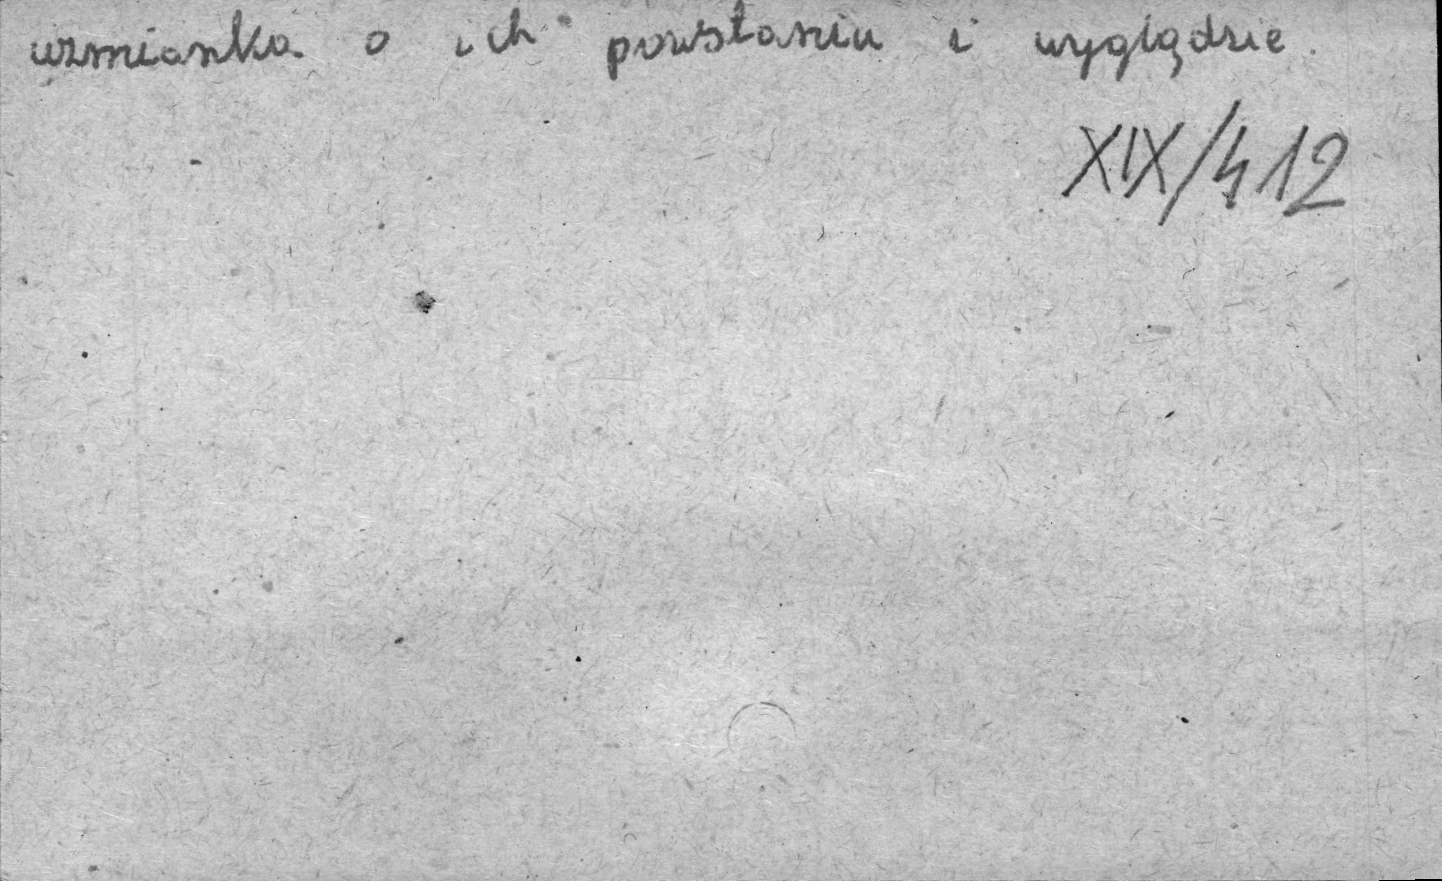 wzmianka o ich powstaniu i wyglądzie.
XIX/412